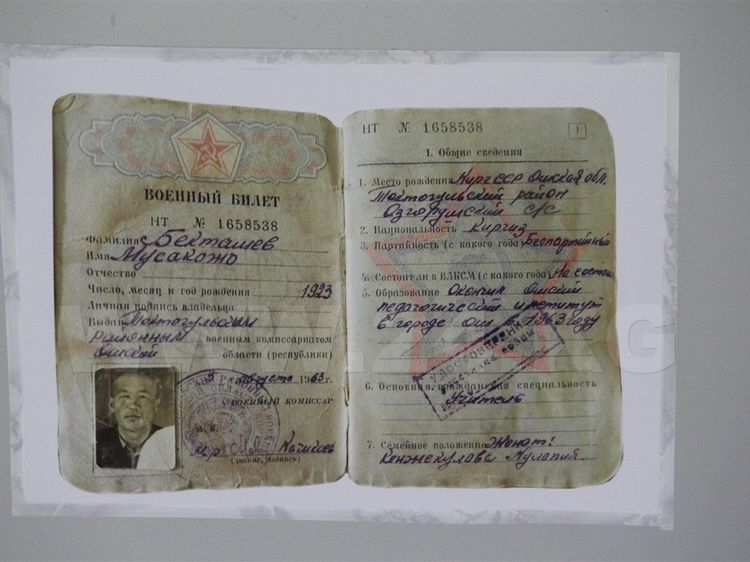 ВОЕННЫЙ БИЛЕТ
НТ № 1658538
Фамилия Бекташев
Имя Мусакожо
Отчество
Число, месяц и год рождения 1923
Личная подпись владельца
Выдан Токтогульским
районным военным комиссариатом
Ошской области (республики)
августа 1963 г.
ВОЕННЫЙ КОМИССАР
М. П.
(звание, подпись)
НТ № 1658538
1
1. Общие сведения
1. Место рождения Кирг ССР Ошская обл.
Токтогульский район
с/с
2. Национальность Киргиз
3. Партийность (с какого года) Беспартийный
4. Состоял ли в ВЛКСМ (с какого года) Не состоял
5. Образование Окончил Ошский
педагогический институт
в городе Ош в 1963 году
УДОСТОВЕРЕНИЕ
6. Основная гражданская специальность
Учитель
7. Семейное положение Женат:
Кенжекулова